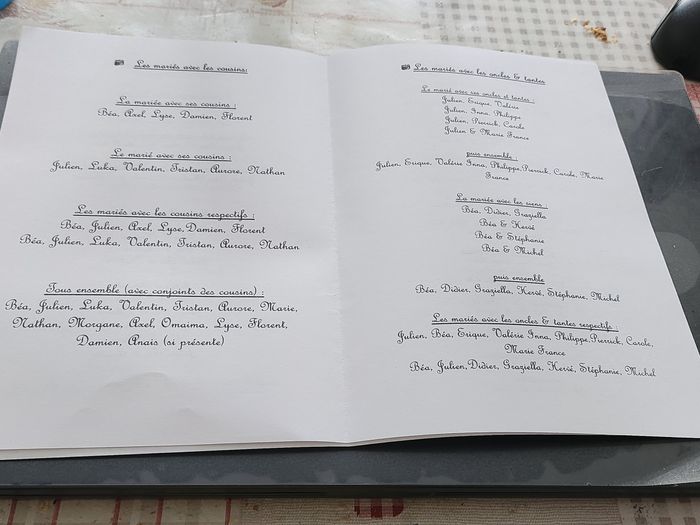 Les mariés avec les cousins:
La mariée avec ses cousins :
Béa, Axel, Lyse, Damien, Florent
Le marié avec ses cousins :
Julien, Luka, Valentin, Tristan, Aurore, Nathan
Les mariés avec les cousins respectifs :
Béa, Julien, Axel, Lyse,Damien, Florent
Béa, Julien, Luka, Valentin, Tristan, Aurore, Nathan
Tous ensemble (avec conjoints des cousins) :
Béa, Julien, Luka, Valentin, Tristan, Aurore, Marie,
Nathan, Morgane, Axel, Omaima, Lyse, Florent,
Damien, Anais (si présente)
Les mariés avec les oncles & tantes
Le marié avec ses oncles et tantes :
Julien, Erique, Valérie
Julien, Inna, Philippe
Julien, Pierrick, Carole
Julien & Marie France
puis ensemble :
Julien, Erique, Valérie Inna, Philippe,Pierrick, Carole, Marie
France
La mariée avec les siens :
Béa, Didier, Graziella
Béa & Hervé
Béa & Stéphanie
Béa & Michel
puis ensemble
Béa, Didier, Graziella, Hervé, Stéphanie, Michel
Les mariés avec les oncles & tantes respectifs :
Julien, Béa, Erique, Valérie Inna, Philippe,Pierrick, Carole,
Marie France
Béa, Julien,Didier, Graziella, Hervé, Stéphanie, Michel